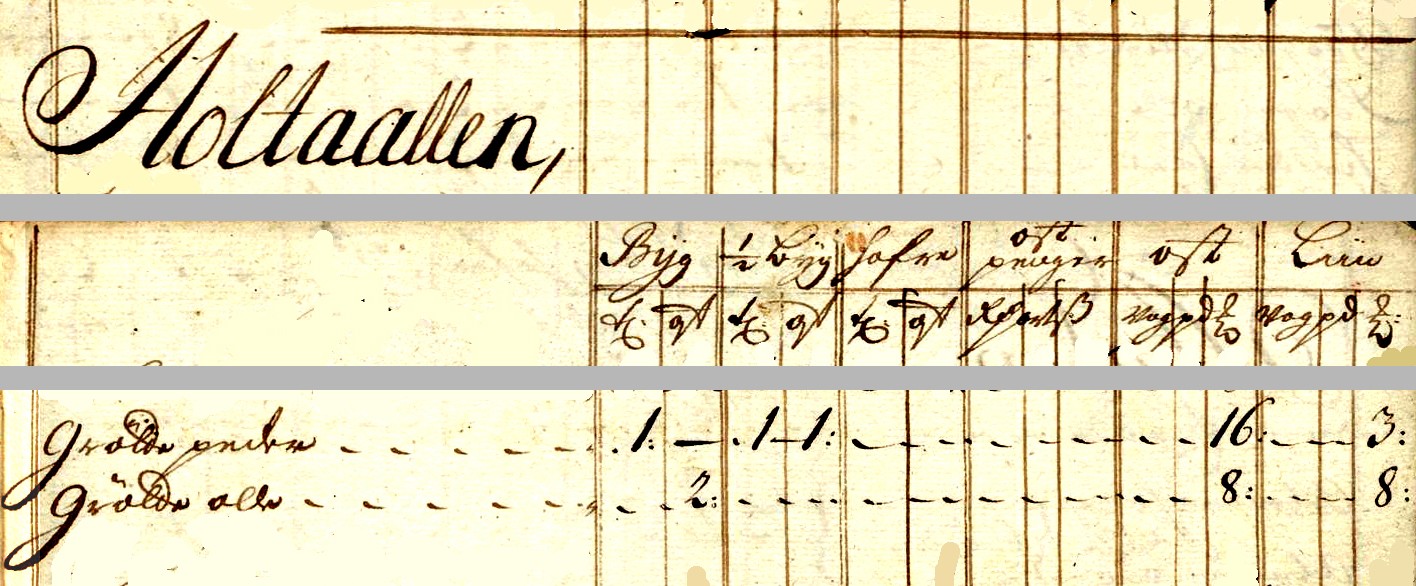 Holtaallen,
Byg ½ byg hafre ost penger ost Liin
tꝭ: qt tꝭ: qt tꝭ: qt Rdr ort ß vog pd ℔ vog pd ℔:
Grölde peder - - - - - 1: — 1 - 1: - - - - - - - 16: - - - 3:
Grölde olle - - - - - - - 2: - - - - - - - - - 8: - - - 8: